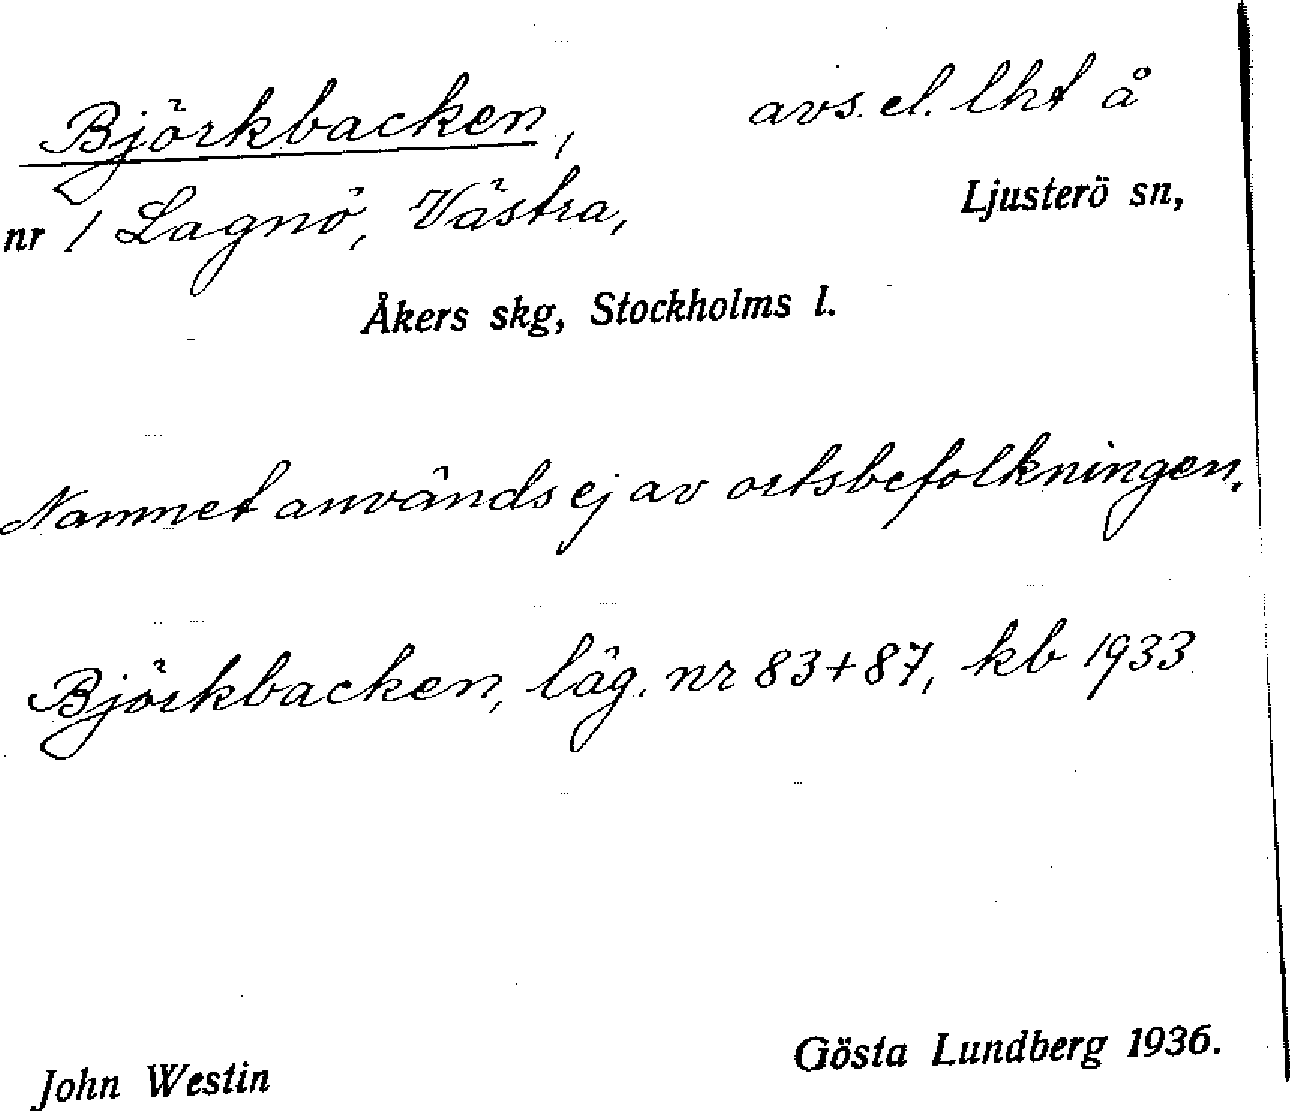 Björkbacken, avs. el. lht å
nr 1 Lagnö, Västra, Ljusterö sn,
Åkers skg, Stockholms l.
Namnet används ej av ortsbefolkningen.
Björkbacken, läg. nr 83+87, kb 1933
John Westin Gösta Lundberg 1936.